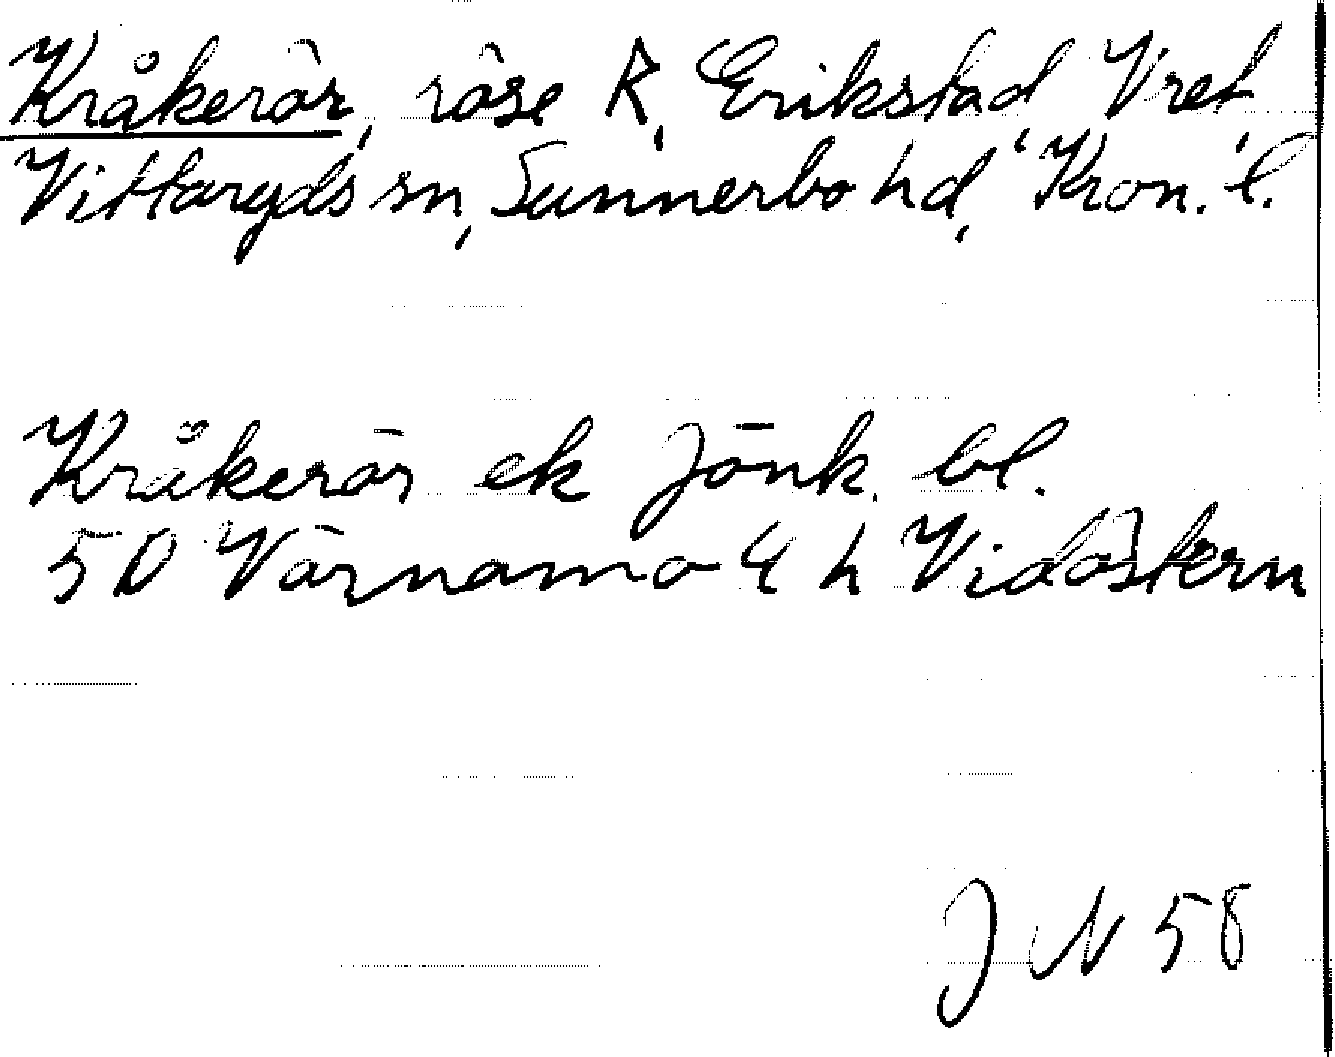 Kråkerör, röse R, Erikstad, Vret,
Vittaryds sn, Sunnerbo hd, Kron. l.
Kråkerör ek Jönk. bl.
5D Värnamo 4 h Vidöstern
J N 58